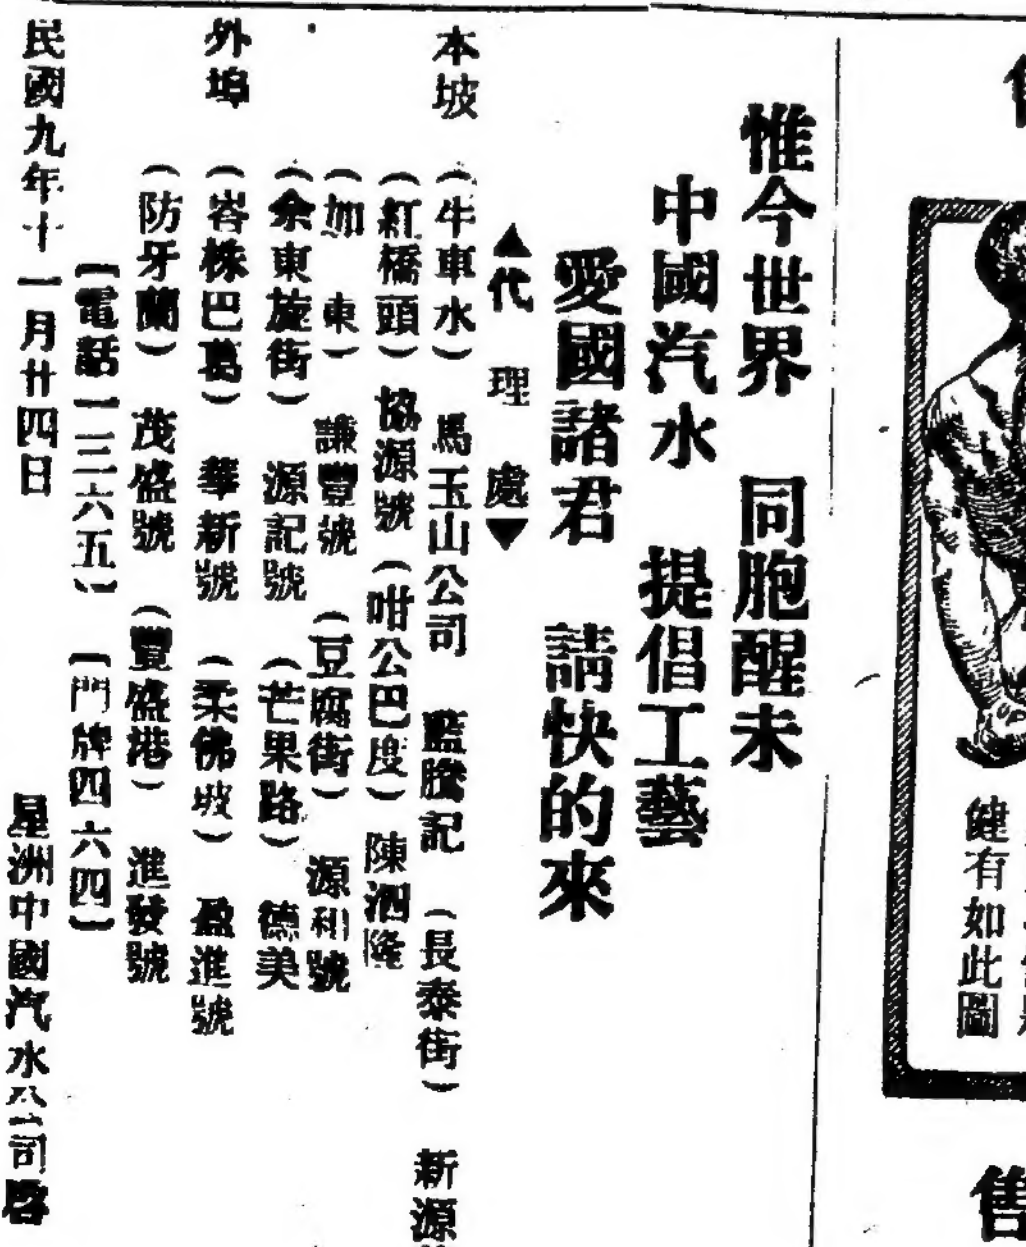 惟今世界　同胞醒未
中國汽水　提倡工藝
愛國諸君　請快的來
▲代理處▼
本坡　(牛車水)　馬玉山公司　藍騰記　(長泰街)　新源
(紅橋頭)　協源號　(咁公巴度)　陳泗隆
(加東)　謙豐號　(豆腐街)　源和號
(余東旋街)　源記號　(芒果路)　德美
外埠　(峇株巴葛)　華新號　(柔佛坡)　盈進號
(防牙蘭)　茂盛號　(豐盛港)　進發號
[電話一三六五]　[門牌四六四]
民國九年十一月廿四日　星洲中國汽水公司啓
健有如此圖
售